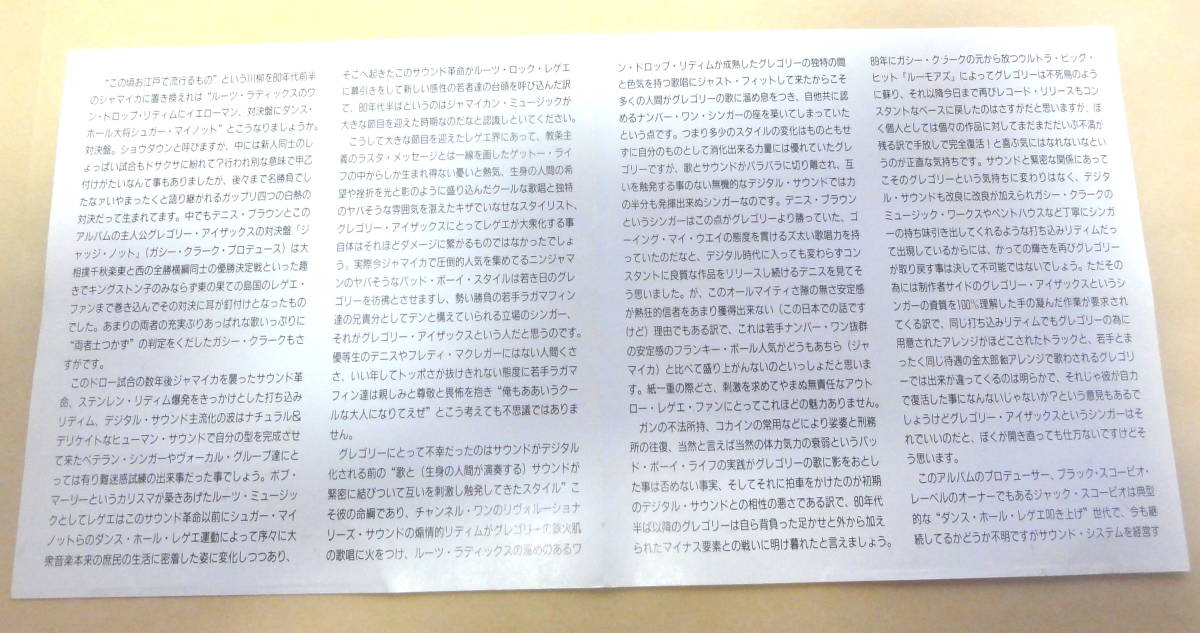 “この頃お江戸で流行るもの”という川柳を80年代前半
のジャマイカに置き換えれは“ルーツ・ラディックスのワ
ン・ドロップ・リティムにイエローマン、対決盤にダンス・
ホール大将シュガー・マイノット”とこうなりましょうか。
対決盤、ショウダウンと呼びますか、中には新人同士のし
ょっぱい試合もドサクサに紛れて？行われ別な意味で甲乙
付けがたいなんて事もありましたが、後々まで名勝負でし
たなァいやまったくと語り継がれるガップリ四つの白熱の
対決だって生まれてます。中でもデニス・ブラウンとこの
アルバムの主人公グレゴリー・アイザックスの対決盤「ジ
ャッジ・ノット」(ガシー・クラーク・プロデュース) は大
相撲千秋楽東と西の全勝横綱同士の優勝決定戦といった趣
きでキングストン子のみならず東の果ての島国のレゲエ・
ファンまで巻き込んでその対決に耳が釘付けとなったもの
でした。あまりの両者の充実ぶりあっぱれな歌いっぷりに
“両者土つかず”の判定をくだしたガシー・クラークもさ
すがです。
このドロー試合の数年後ジャマイカを襲ったサウンド革
命、ステンレン・リティム爆発をきっかけとした打ち込み
リティム、デジタル・サウンド主流化の波はナチュラル&
デリケイトなヒューマン・サウンドで自分の型を完成させ
て来たベテラン・シンガーやヴォーカル・グループ達にと
っては有り難迷惑試練の出来事だった事でしょう。ボブ・
マーリーというカリスマが築きあげたルーツ・ミュージッ
クとしてレゲエはこのサウンド革命以前にシュガー・マイ
ノットらのダンス・ホール・レゲエ運動によって序々に大
衆音楽本来の庶民の生活に密着した姿に変化しつつあり、
そこへ起きたこのサウンド革命がルーツ・ロック・レゲエ
に幕引きをして新しい感性の若者達の台頭を呼び込んだ訳
で、80年代半ばというのはジャマイカン・ミュージックが
大きな節目を迎えた時期なのだなと認識しといてください。
こうして大きな節目を迎えてレゲエ界にあって、教条主
義のラスタ・メッセージとは一線を画したゲットー・ライ
フの中からしか生まれ得ない憂いと熱気、生身の人間の希
望や挫折を光と影のように盛り込んだクールな歌唱と独特
のヤバそうな雰囲気を湛えたキザでいなせなスタイリスト、
グレゴリー・アイザックスにとってレゲエが大衆化する事
自体はそれほどダメージに繋がるものではなかったでしょ
う。実際今ジャマイカで圧倒的人気を集めてるニンジャマ
ンのヤバそうなバッド・ボーイ・スタイルは若き日のグレ
ゴリーを彷彿とさせますし、勢い勝負の若手ラガマフィン
達の兄貴分としてデンと構えていられる立場のシンガー、
それがグレゴリー・アイザックスという人だと思うのです。
優等生のデニスやフレディ・マクレガーにはない人間くさ
さ、いい年してトッポさが抜けきれない態度に若手ラガマ
フィン達は親しみと尊敬と畏怖を抱き“俺もああいうクー
ルな大人になりてえぜ”とこう考えても不思議ではありま
せん。
グレゴリーにとって不幸だったのはサウンドがデジタル
化される前の“歌と (生身の人間が演奏する) サウンドが
緊密に結びついて互いを刺激し触発してきたスタイル”こ
そ彼の命綱であり、チャンネル・ワンのリヴォルーショナ
リーズ・サウンドの煽情的リティムがグレゴリーの鉄火肌
の歌唱に火をつけ、ルーツ・ラディックスの溜めのあるワ
ン・ドロップ・リティムが成熟したグレゴリーの独特の間
と色気を持つ歌唱にジャスト・フィットして来たからこそ
多くの人間がグレゴリーの歌に溜め息をつき、自他共に認
めるナンバー・ワン・シンガーの座を築いてしまっていた
という点です。つまり多少のスタイルの変化はものともせ
ずに自分のものとして消化出来る力量には優れていたグレ
ゴリーですが、歌とサウンドがバラバラに切り離され、互
いを触発する事のない無機的なデジタル・サウンドではカ
の半分も発揮出来ぬシンガーなのです。デニス・ブラウン
というシンガーはこの点がグレゴリーより勝っていた、ゴ
ーイング・マイ・ウエイの態度を貫けるズ太い歌唱力を持
っていたのだなと、デジタル時代に入っても変わらずコン
スタントに良質な作品をリリースし続けるデニスを見てそ
う思いました。が、このオールマイティさ隙の無さ安定感
が熱狂的信者をあまり獲得出来ない (この日本での話です
けど) 理由でもある訳で、これは若手ナンバー・ワン抜群
の安定感のフランキー・ポール人気がどうもあちら (ジャ
マイカ) と比べて盛り上がんないのといっしょだと思いま
す。紙一重の際どさ、刺激を求めてやまぬ無責任なアウト
ロー・レゲエ・ファンにとってこれほどの魅力ありません。
ガンの不法所持、コカインの常用などにより娑婆と刑務
所の往復、当然と言えば当然の体力気力の衰弱というバッ
ド・ボーイ・ライフの実践がグレゴリーの歌に影をおとし
た事は否めない事実、そしてそれに拍車をかけたのが初期
のデジタル・サウンドとの相性の悪さである訳で、80年代
半ば以降のグレゴリーは自ら背負った足かせと外から加え
られたマイナス要素との戦いに明け暮れたと言えましょう。
89年にガシー・クラークの元から放つウルトラ・ビッグ・
ヒット「ルーモアズ」によってグレゴリーは不死鳥のよう
に蘇り、それ以降今日まで再びレコード・リリースもコン
スタントなペースに戻したのはさすがだと思いますが、ぼ
く個人としては個々の作品に対してまだまだだいぶ不満が
残る訳で手放しで完全復活！と喜ぶ気にはなれないなとい
うのが正直な気持ちです。サウンドと緊密な関係にあって
こそのグレゴリーという気持ちに変わりはなく、デジタ
ル・サウンドも改良に改良が加えられガシー・クラークの
ミュージック・ワークスやペントハウスなど丁寧にシンガ
ーの持ち味引き出してくれるような打ち込みリティムだっ
て出現しているからには、かっての輝きを再びグレゴリー
が取り戻す事は決して不可能ではないでしょう。ただその
為には制作者サイドのグレゴリー・アイザックスというシ
ンガーの資質を100%理解した手の凝んだ作業が要求され
てくる訳で、同じ打ち込みリティムでもグレゴリーの為に
用意されたアレンジがほどこされたトラックと、若手とま
ったく同じ待遇の金太郎飴アレンジで歌わされるグレゴリ
ーでは出来が違ってくるのは明らかで、それじゃ彼が自力
で復活した事になんないじゃないか？という意見もあるで
しょうけどグレゴリー・アイザックスというシンガーはそ
れでいいのだと、ぼくが開き直っても仕方ないですけどそ
う思います。
このアルバムのプロデューサー、ブラック・スコーピオ・
レーベルのオーナーでもあるジャック・スコーピオは典型
的な“ダンス・ホール・レゲエ叩き上げ”世代で、今も継
続してるかどうか不明ですがサウンド・システムを経営す